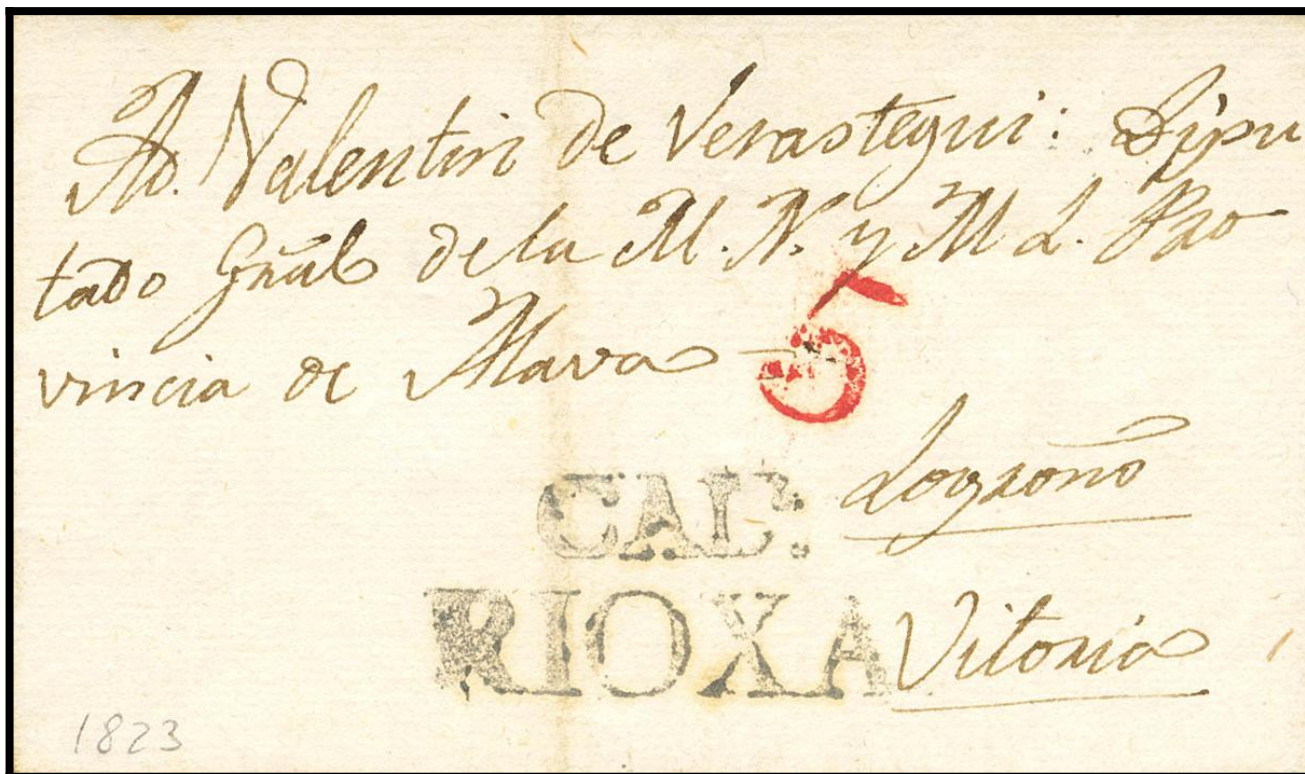 Valentin de Verastegui: Dipu
tado Gñal de la M. N. y M L. Pro
vincia de Alava
5
Logroño
CAL^A:
RIOXA
Vitoria
1823